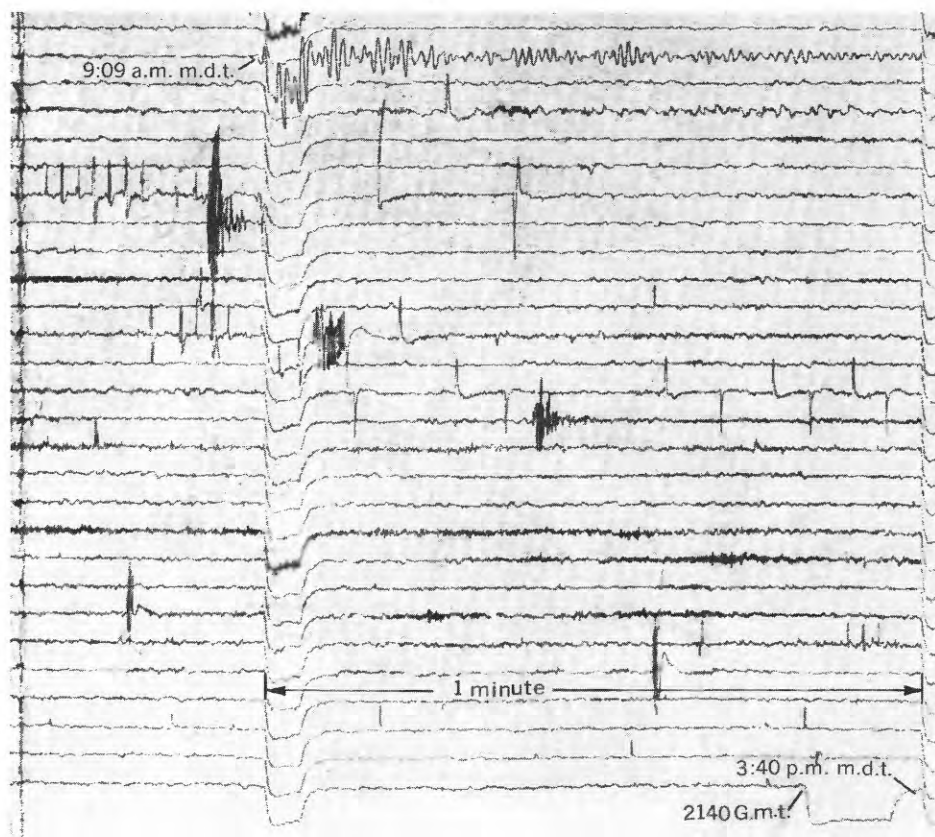 9:09 a.m. m.d.t.
1 minute
3:40 p.m. m.d.t.
2140 G.m.t.